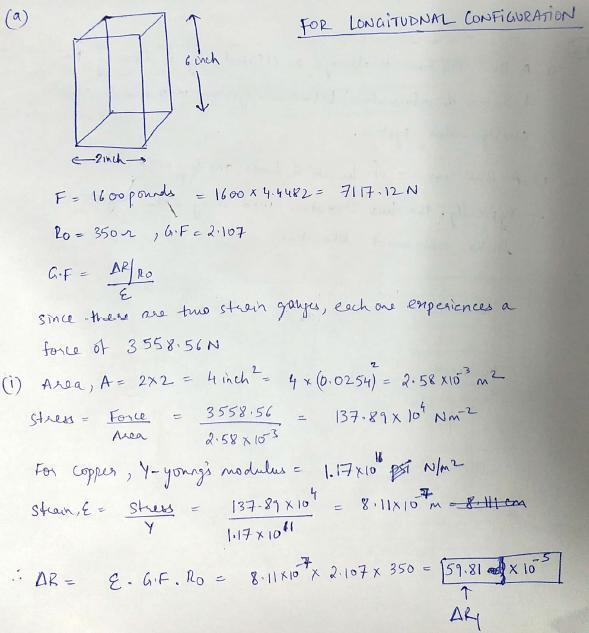 (a)
FOR LONGITUDNAL CONFIGURATION
6 inch
2 inch
F = 1600 pounds = 1600 × 4.4482 = 7117.12 N
R0 = 350 Ω , G.F = 2.107
G.F = ΔR/R0 / ε
Since there are two strain gauges, each one experiences a
force of 3558.56 N
(i) Area, A = 2×2 = 4 inch² = 4 × (0.0254)² = 2.58 ×10⁻³ m²
Stress = Force / Area = 3558.56 / 2.58 × 10⁻³ = 137.89 × 10⁴ Nm⁻²
For copper, Y-young's modulus = 1.17×10¹¹ N/m²
Strain, ε = Stress / Y = 137.89 × 10⁴ / 1.17 × 10¹¹ = 8.11×10⁻⁷ m
∴ ΔR = ε . G.F . R0 = 8.11×10⁻⁷ × 2.107 × 350 = 59.81 × 10⁻⁵
↑
ΔR1